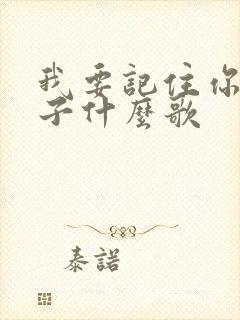 我要記住你
子什麼歌
泰諾